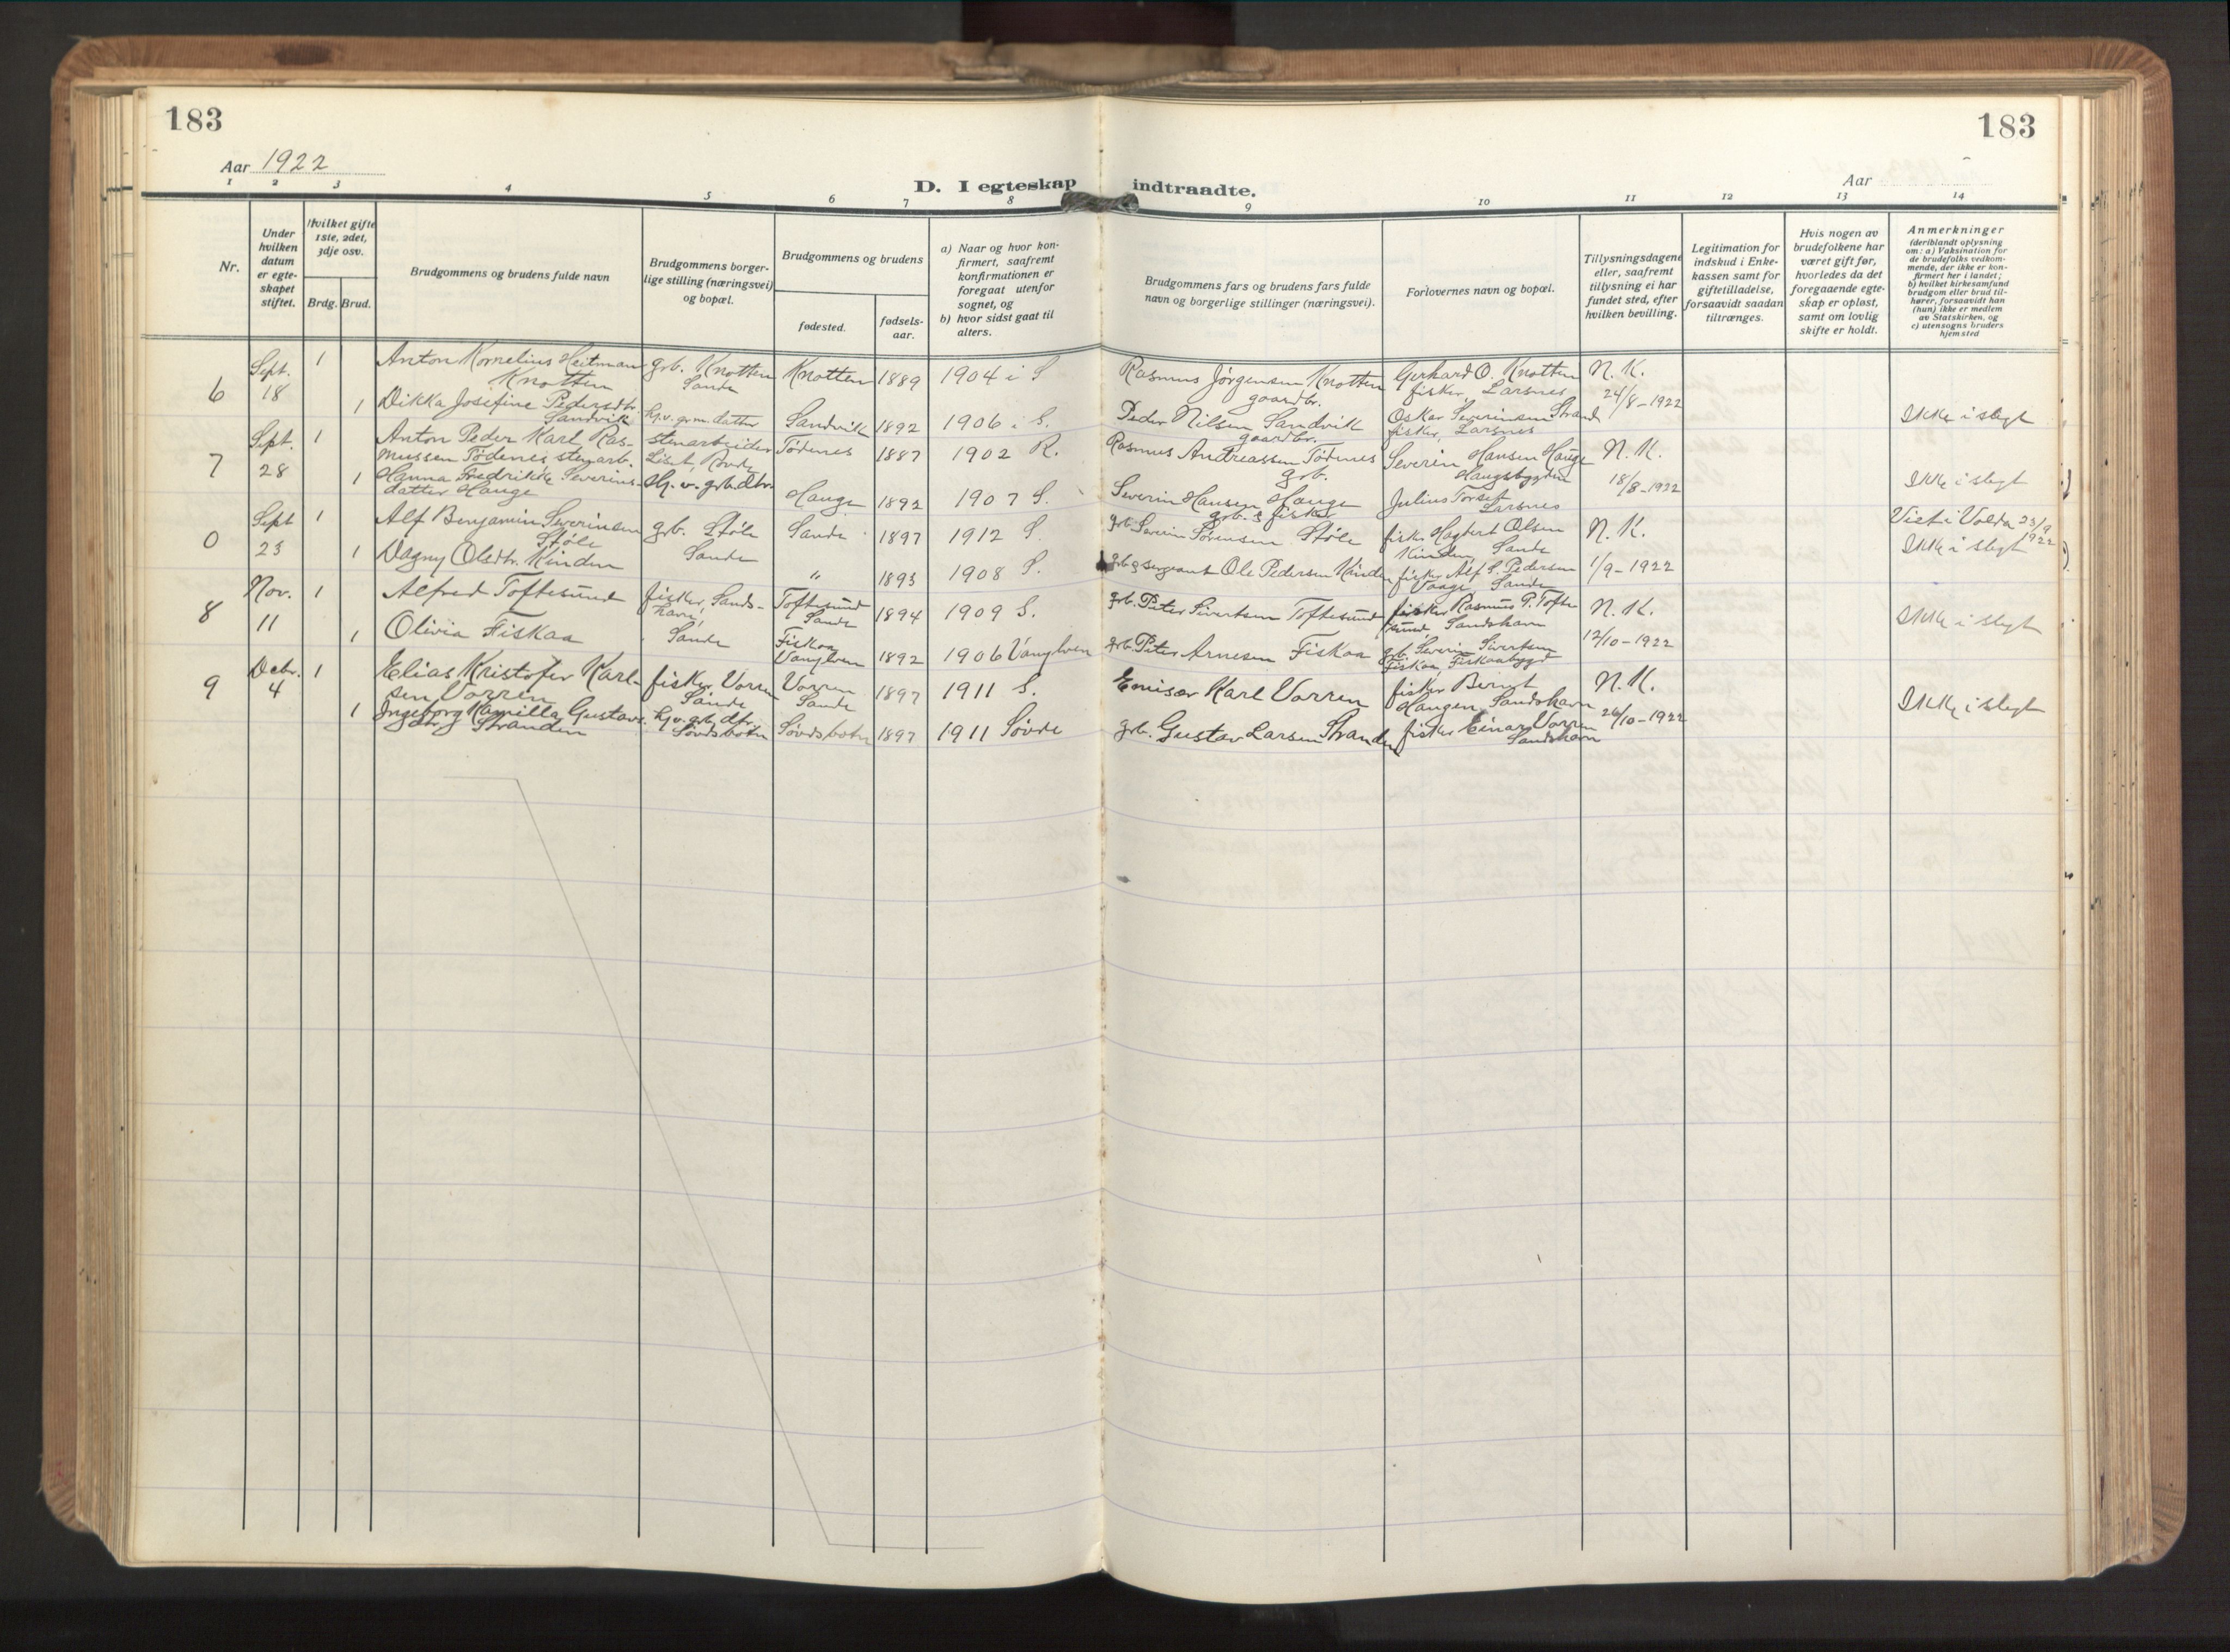 183
183
Aar 1922
Aar
D. I egteskap indtraadte.
1 2 3 4 5 6 7 8 9 10 11 12 13 14
Nr.
Under
hvilken
datum
er egte-
skapet
stiftet.
Hvilket gifte
1ste, 2det,
3dje osv.
Brdg. Brud.
Brudgommens og brudens fulde navn
Brudgommens borger-
lige stilling (næringsvei)
og bopæl.
Brudgommens og brudens
fødested.
fødsels-
aar.
a) Naar og hvor kon-
firmert, saafremt
konfirmationen er
foregaat utenfor
sognet, og
b) hvor sidst gaat til
alters.
Brudgommens fars og brudens fars fulde
navn og borgerlige stillinger (næringsvei).
Forlovernes navn og bopæl.
Tillysningsdagene
eller, saafremt
tillysning ei har
fundet sted, efter
hvilken bevilling.
Legitimation for
indskud i Enke-
kassen samt for
giftetilladelse,
forsaavidt saadan
tiltrænges.
Hvis nogen av
brudefolkene har
været gift før,
hvorledes da det
foregaaende egte-
skap er opløst,
samt om lovlig
skifte er holdt.
Anmerkninger
(deriblandt oplysning
om: a) Vaksination for
de brudefolks vedkom-
mende, der ikke er kon-
firmert her i landet;
b) hvilket kirkesamfund
brudgom eller brud til-
hører, forsaavidt han
(hun) ikke er medlem
av Statskirken, og
c) utensogns bruders
hjemsted
6
Sept.
18
1
Anton Kornelius Heitman
Knotten
grb. Knotten
Sande
Knotten
1889
1904 i S
Rasmus Jørgensen Knotten
gaardbr.
Gerhard O. Knotten
fisker, Larsnes
N. K.
24/8-1922
1
Dikka Josefine Pedersdtr.
Sandvik
hj.v. grm. datter
Sandvik
1892
1906 i S.
Peder Nilsen Sandvik
gaardbr.
Oskar Severinsen Strand
fisker, Larsnes
Ikke i slegt
7
Sept.
28
1
Anton Peder Karl Ras-
mussen Tødenes stenarb.
stenarbeider
Liset, Rovde
Tødenes
1887
1902 R.
Rasmus Andreassen Tødenes
grb.
Severin Hansen Hauge
Haugsbygden
N. K.
18/8-1922
1
Hanna Fredrikke Severins-
datter Hauge
Hj. v. grb. dtr.
Hauge
1892
1907 S.
Severin Hansen Hauge
grb. & fisker
Julius Torset
Larsnes
Ikke i slegt
0
Sept
23
1
Alf Benjamin Severinsen
Støle
grb. Støle
Sande
Sande
1897
1912 S.
grb. Severin Sørensen Støle
fisker Hagbert Olsen
Kinden, Sande
N. K.
1/9-1922
Viet i Volda 23/9
1922
1
Dagny Olsdtr. Kinden
"
1893
1908 S.
grb. & sergeant Ole Pedersen Kinden
fisker Alf S. Pedersen
Vaage Sande
Ikke i slegt
8
Nov.
11
1
Alfred Toftesund
fisker, Sands-
havn,
Sande
Toftesund
Sande
1894
1909 S.
grb. Peter Sivertsen Toftesund
fisker Rasmus P. Tofte
sund, Sandshavn
N. K.
12/10-1922
1
Olivia Fiskaa
Fiskaa
Vanylven
1892
1906 Vanylven
grb. Peter Arnesen Fiskaa
grb. Severin Sivertsen
Fiskaa, Fiskaabygd
Ikke i slegt
9
Decbr.
4
1
Elias Kristofer Karl-
sen Vorren
fisker, Vorren
Sande
Vorren
Sande
1897
1911 S.
Emisær Karl Vorren
fisker Bernt
Haugen, Sandshavn
N. K.
26/10-1922
1
Ingeborg Kamilla Gustavs-
dtr. Stranden
hj.v. grb. dtr.
Søvdsbotn
Søvdsbotn
1897
1911 Søvde
grb. Gustav Larsen Stranden
fisker Einar Vorren
Sandshavn
Ikke i slegt